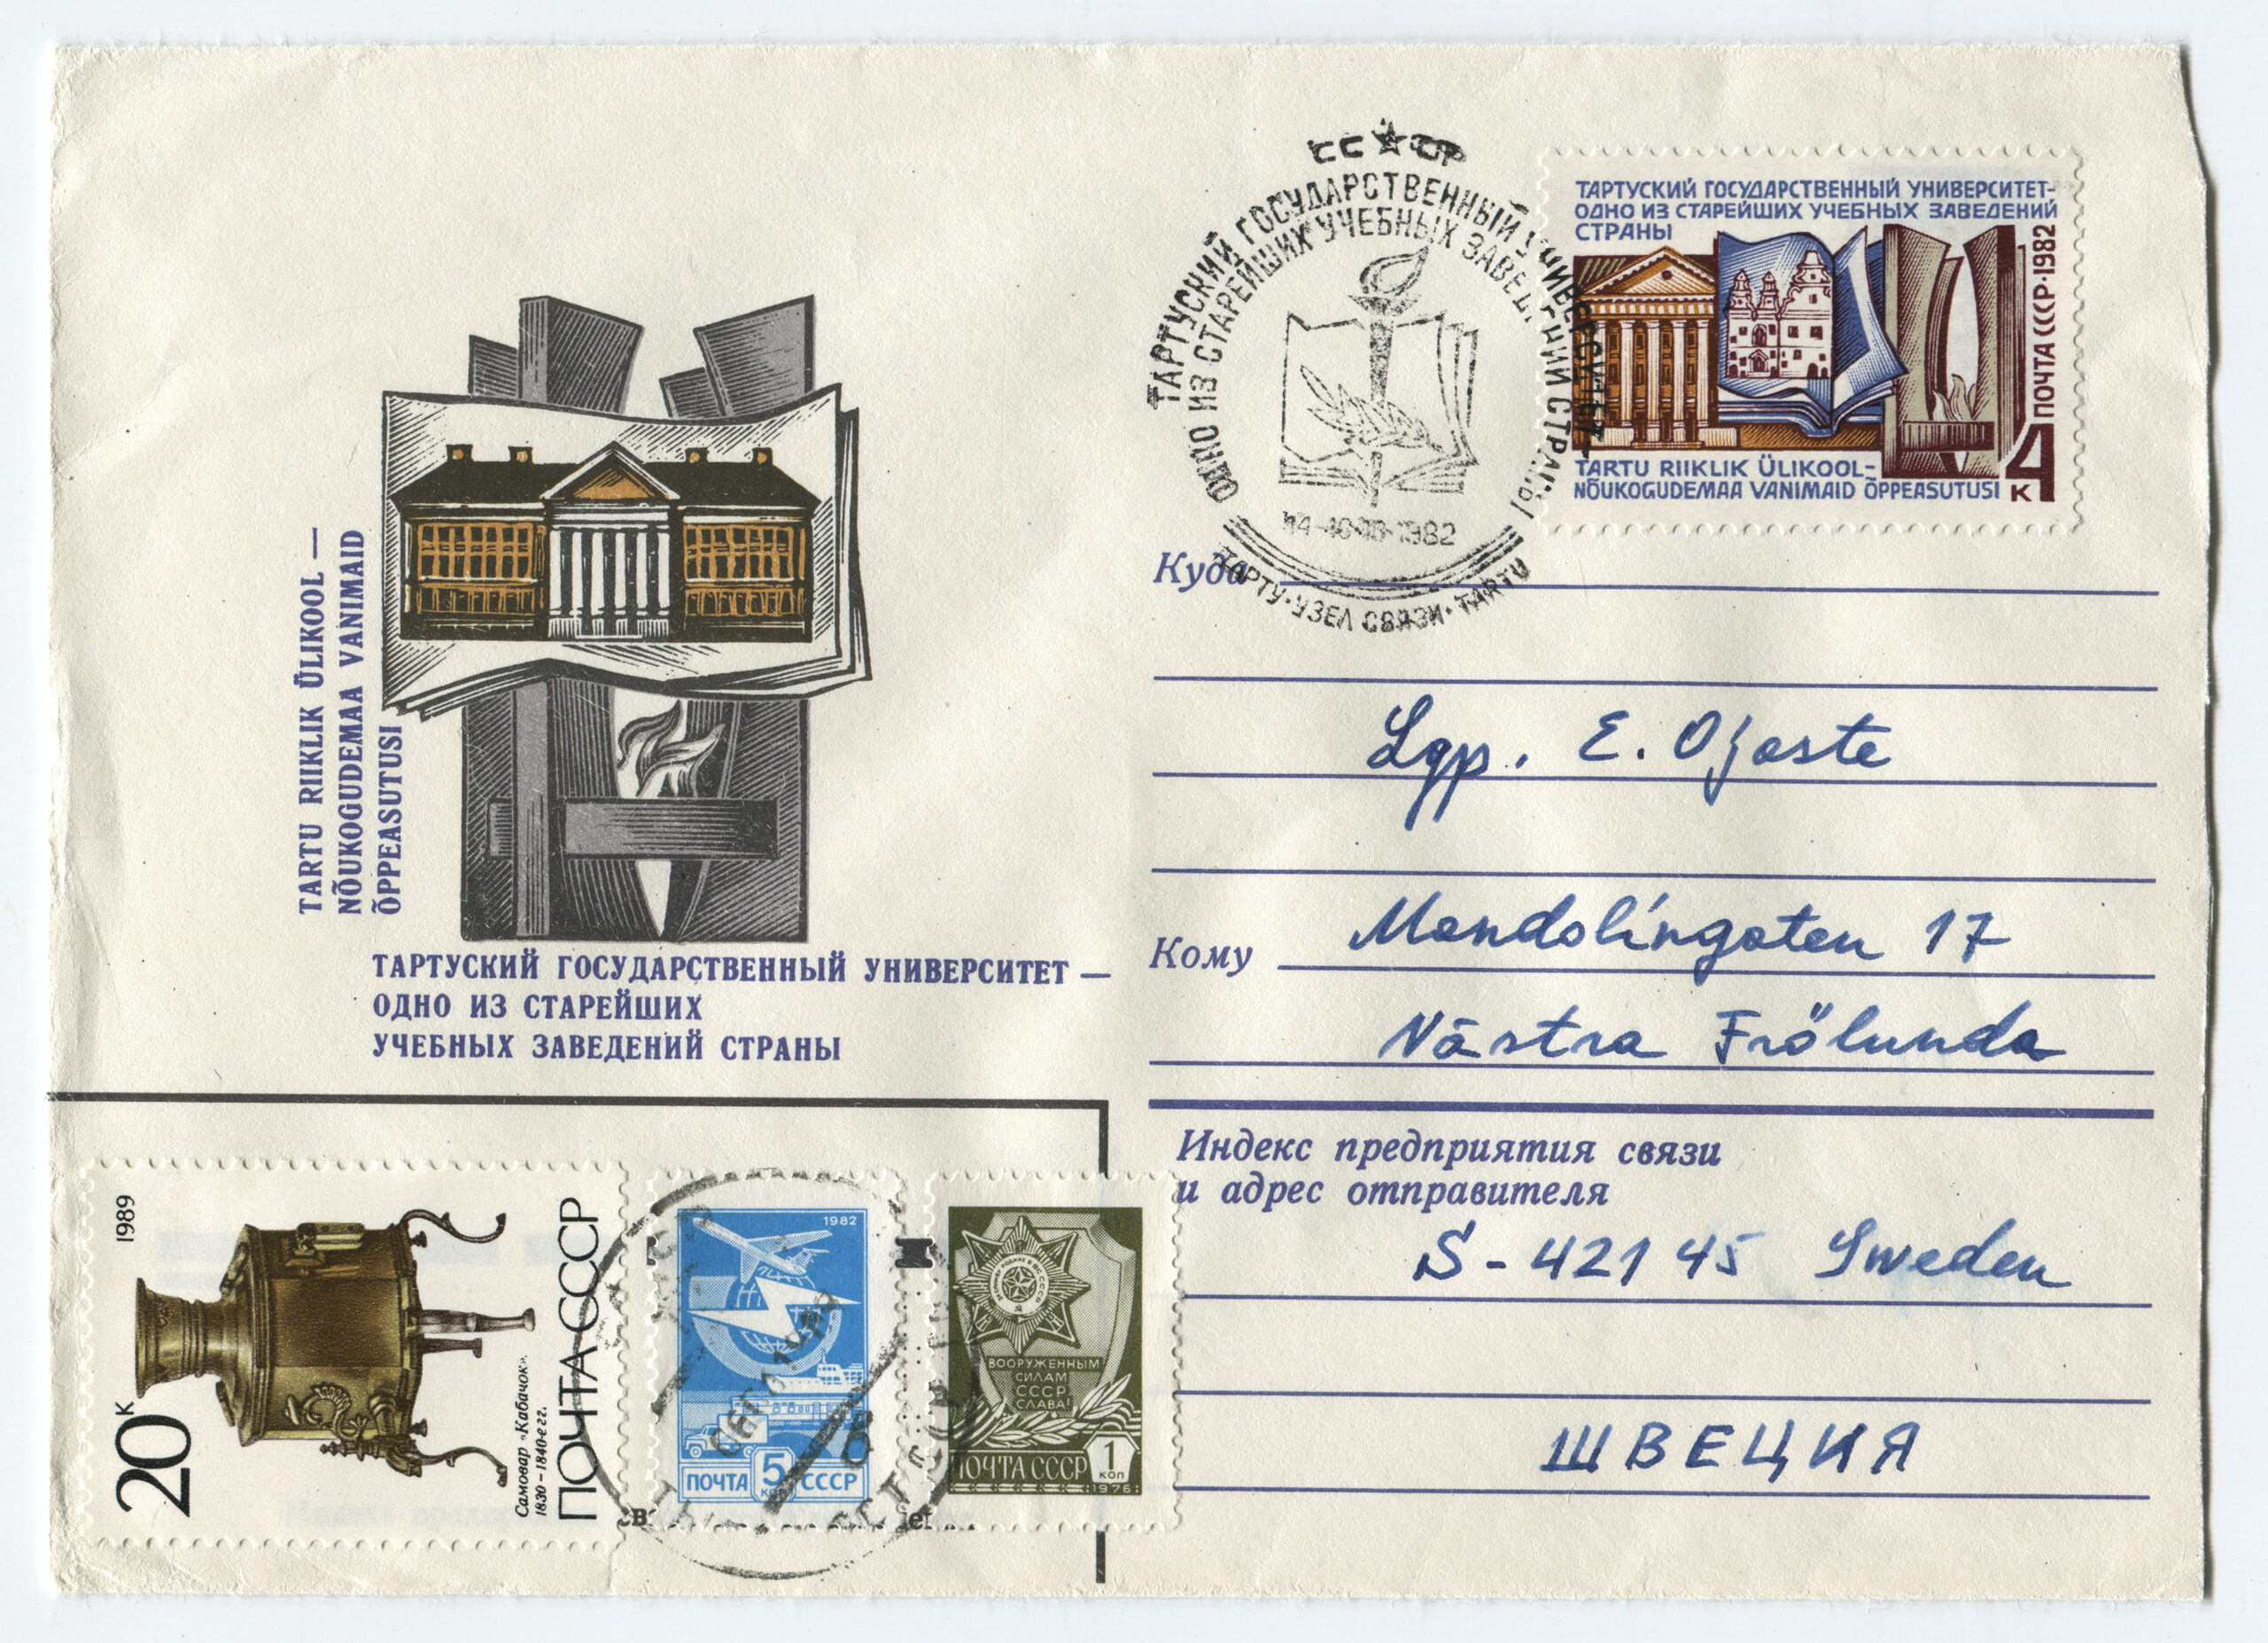 СССР
ТАРТУСКИЙ ГОСУДАРСТВЕННЫЙ УНИВЕРСИТЕТ
ОДНО ИЗ СТАРЕЙШИХ УЧЕБНЫХ ЗАВЕДЕНИЙ СТРАНЫ
1982
ТАРТУ·УЗЕЛ СВЯЗИ·TARTU
ТАРТУСКИЙ ГОСУДАРСТВЕННЫЙ УНИВЕРСИТЕТ-
ОДНО ИЗ СТАРЕЙШИХ УЧЕБНЫХ ЗАВЕДЕНИЙ
СТРАНЫ
ПОЧТА СССР·1982
4
К
TARTU RIIKLIK ÜLIKOOL-
NÕUKOGUDEMAA VANIMAID ÕPPEASUTUSI
TARTU RIIKLIK ÜLIKOOL —
NÕUKOGUDEMAA VANIMAID
ÕPPEASUTUSI
ТАРТУСКИЙ ГОСУДАРСТВЕННЫЙ УНИВЕРСИТЕТ —
ОДНО ИЗ СТАРЕЙШИХ
УЧЕБНЫХ ЗАВЕДЕНИЙ СТРАНЫ
Куда
Lgp. E. Ojaste
Кому
Mandolingatan 17
Västra Frölunda
Индекс предприятия связи
и адрес отправителя
S-421 45 Sweden
ШВЕЦИЯ
1989
20 К
Самовар «Кабачок».
1830–1840-е гг.
ПОЧТА СССР
1982
ПОЧТА 5 СССР
коп
ВООРУЖЕННЫМ
СИЛАМ
СССР
СЛАВА!
ПОЧТА СССР 1
коп
1976